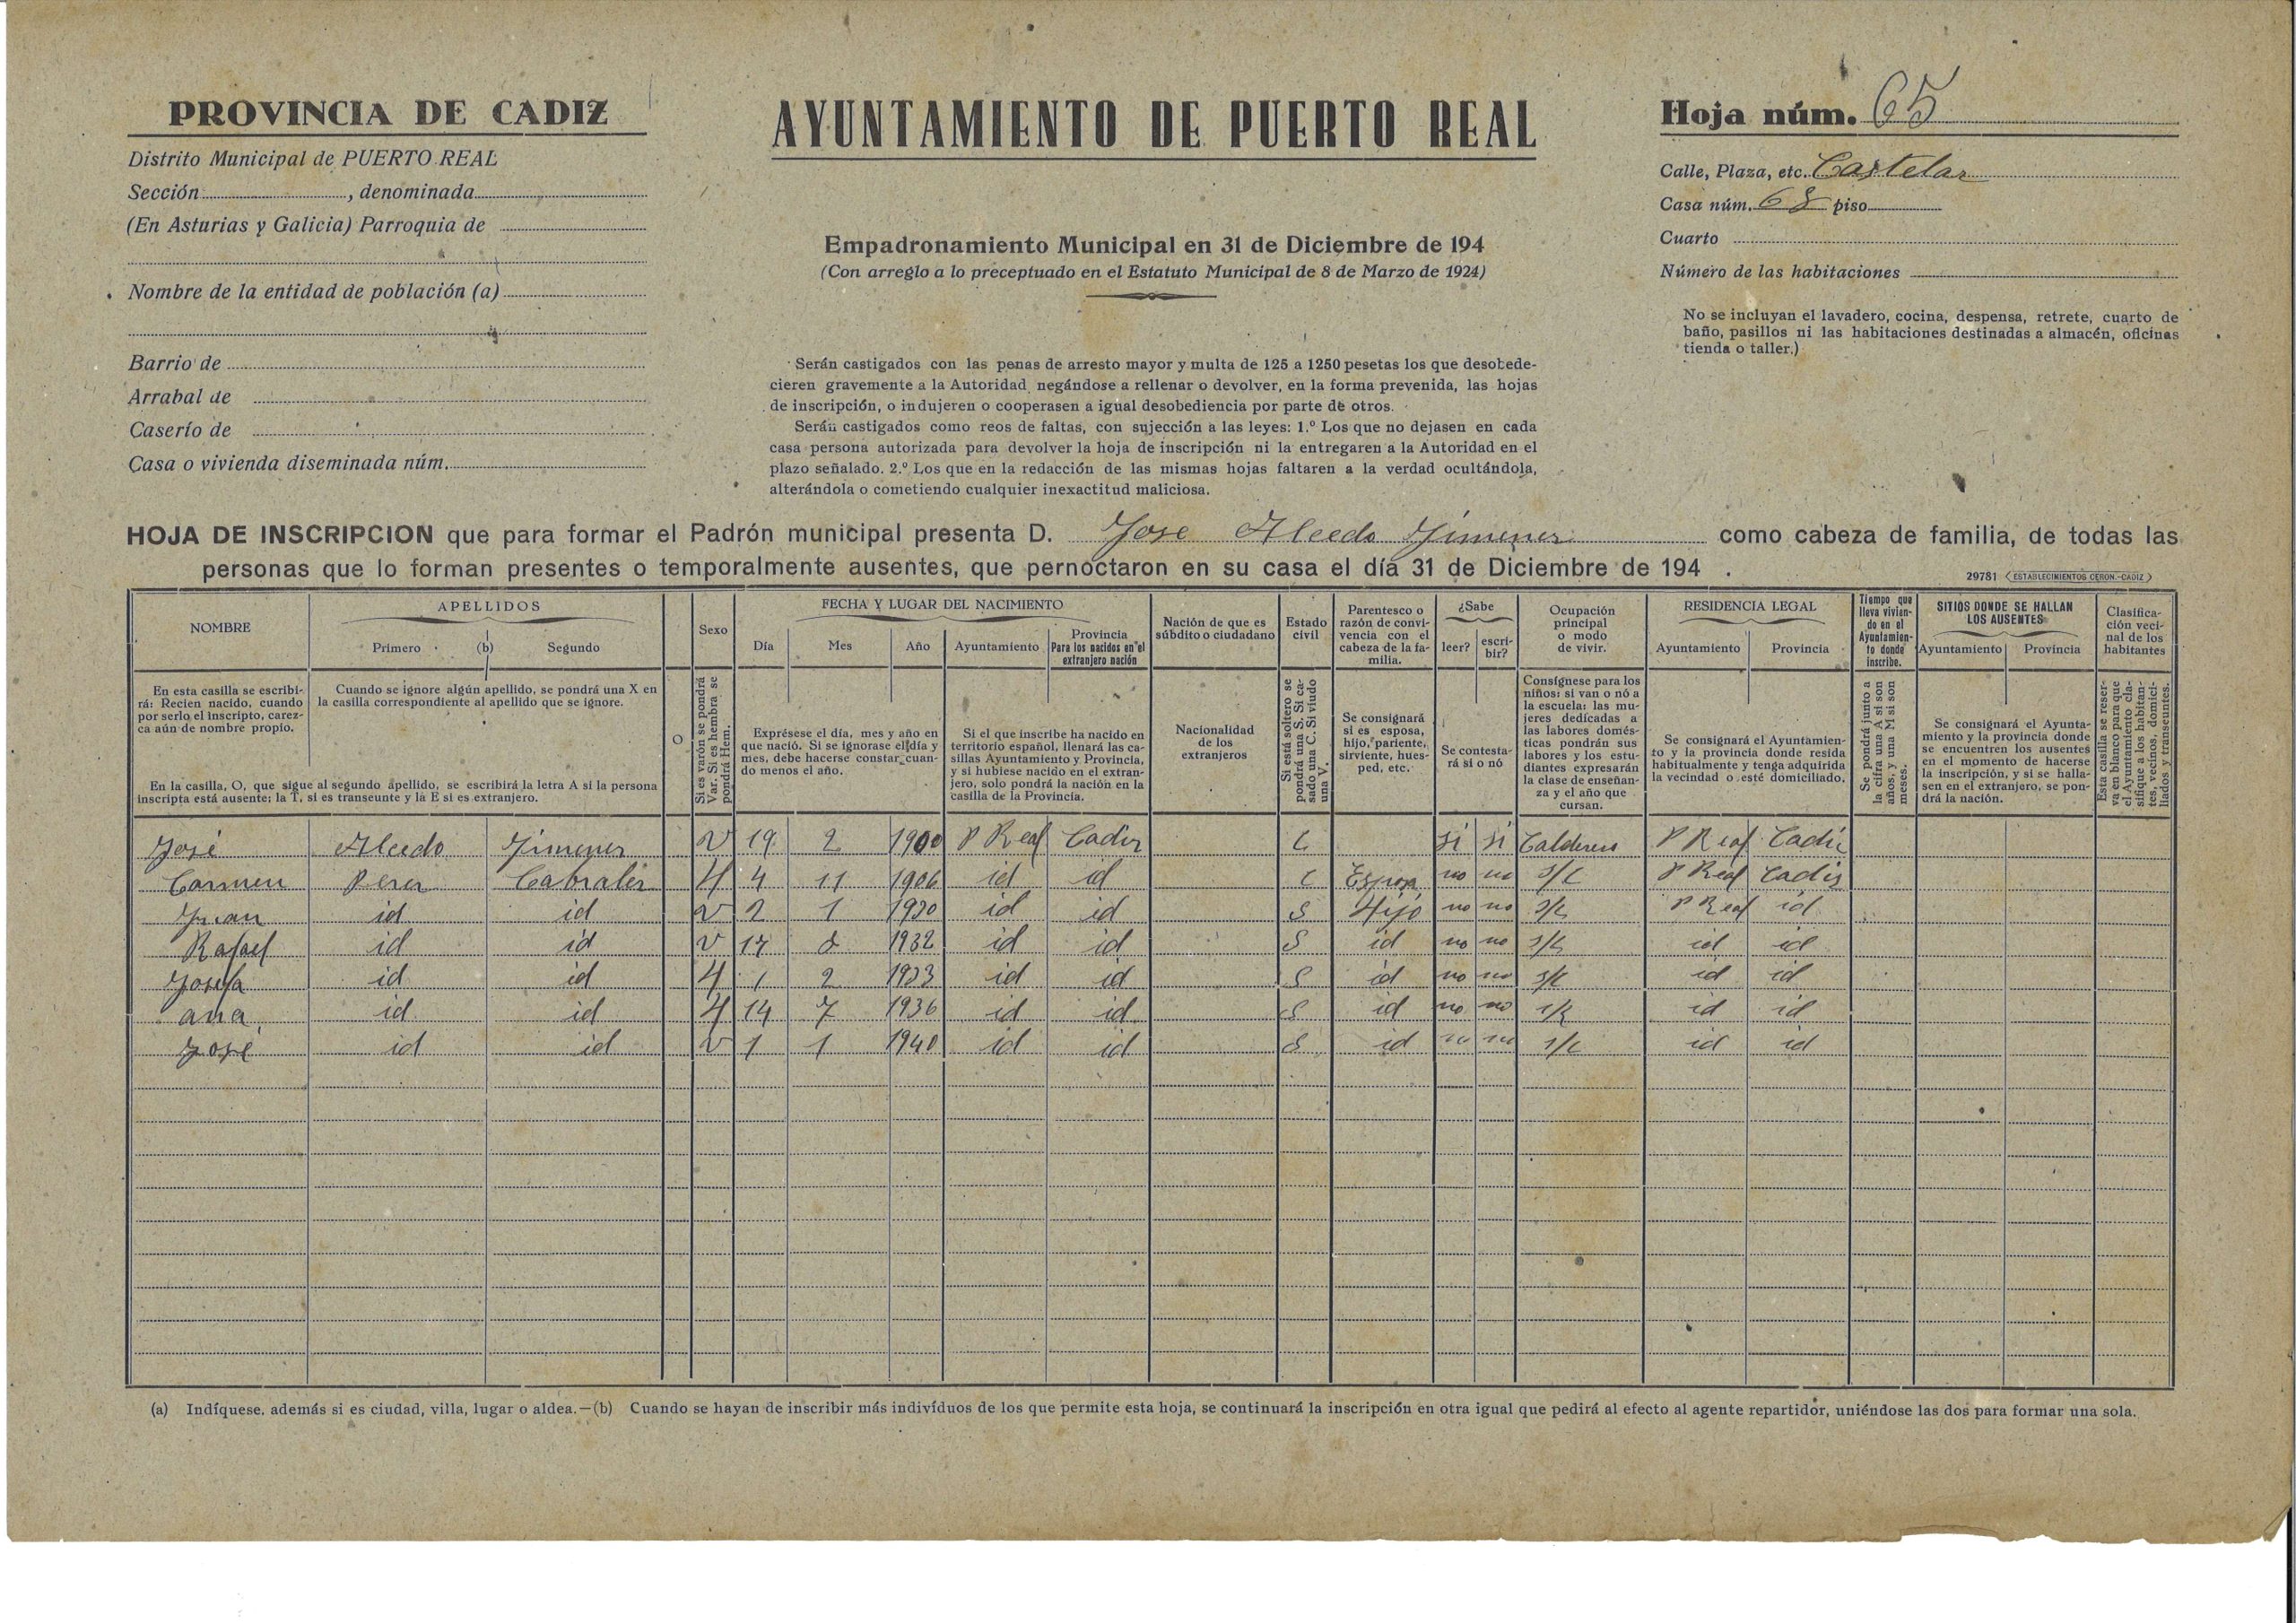 PROVINCIA DE CADIZ
Distrito Municipal de PUERTO REAL
Sección , denominada
(En Asturias y Galicia) Parroquia de
Nombre de la entidad de población (a)
Barrio de
Arrabal de
Caserío de
Casa o vivienda diseminada núm.
AYUNTAMIENTO DE PUERTO REAL
Empadronamiento Municipal en 31 de Diciembre de 194
(Con arreglo a lo preceptuado en el Estatuto Municipal de 8 de Marzo de 1924)
Serán castigados con las penas de arresto mayor y multa de 125 a 1250 pesetas los que desobede-
cieren gravemente a la Autoridad negándose a rellenar o devolver, en la forma prevenida, las hojas
de inscripción, o indujeren o cooperasen a igual desobediencia por parte de otros.
Serán castigados como reos de faltas, con sujección a las leyes: 1.º Los que no dejasen en cada
casa persona autorizada para devolver la hoja de inscripción ni la entregaren a la Autoridad en el
plazo señalado. 2.º Los que en la redacción de las mismas hojas faltaren a la verdad ocultándola,
alterándola o cometiendo cualquier inexactitud maliciosa.
Hoja núm. 65
Calle, Plaza, etc. Castelar
Casa núm. 68 piso
Cuarto
Número de las habitaciones
No se incluyan el lavadero, cocina, despensa, retrete, cuarto de
baño, pasillos ni las habitaciones destinadas a almacén, oficinas
tienda o taller.)
HOJA DE INSCRIPCION que para formar el Padrón municipal presenta D. Jose Alcedo Jimenez como cabeza de familia, de todas las
personas que lo forman presentes o temporalmente ausentes, que pernoctaron en su casa el día 31 de Diciembre de 194 .
29781 ESTABLECIMIENTOS CERON.-CADIZ
NOMBRE
APELLIDOS
Primero (b) Segundo
O
Sexo
FECHA Y LUGAR DEL NACIMIENTO
Día Mes Año Ayuntamiento
Provincia
Para los nacidos en el
extranjero nación
Nación de que es
súbdito o ciudadano
Estado
civil
Parentesco o
razón de convi-
vencia con el
cabeza de la fa-
milia.
¿Sabe
leer? escri-
bir?
Ocupación
principal
o modo
de vivir.
RESIDENCIA LEGAL
Ayuntamiento Provincia
Tiempo que
lleva vivien-
do en el
Ayuntamien-
to donde
inscribe.
SITIOS DONDE SE HALLAN
LOS AUSENTES
Ayuntamiento Provincia
Clasifica-
ción veci-
nal de los
habitantes
En esta casilla se escribi-
rá: Recien nacido, cuando
por serlo el inscripto, carez-
ca aún de nombre propio.
Cuando se ignore algún apellido, se pondrá una X en
la casilla correspondiente al apellido que se ignore.
En la casilla, O, que sigue al segundo apellido, se escribirá la letra A si la persona
inscripta está ausente; la T, si es transeunte y la E si es extranjero.
Si es varón se pondrá
Var. Si es hembra se
pondrá Hem.
Exprésese el día, mes y año en
que nació. Si se ignorase el día y
mes, debe hacerse constar cuan-
do menos el año.
Si el que inscribe ha nacido en
territorio español, llenará las ca-
sillas Ayuntamiento y Provincia,
y si hubiese nacido en el extran-
jero, solo pondrá la nación en la
casilla de la Provincia.
Nacionalidad
de los
extranjeros
Si está soltero se
pondrá una S. Si ca-
sado una C. Si viudo
una V.
Se consignará
si es esposa,
hijo, pariente,
sirviente, hues-
ped, etc.
Se contesta-
rá si o nó
Consígnese para los
niños: si van o nó a
la escuela: las mu-
jeres dedicadas a
las labores domés-
ticas pondrán sus
labores y los estu-
diantes expresarán
la clase de enseñan-
za y el año que
cursan.
Se consignará el Ayuntamien-
to y la provincia donde resida
habitualmente y tenga adquirida
la vecindad o esté domiciliado.
Se pondrá junto a
la cifra una A si son
años, y una M si son
meses.
Se consignará el Ayunta-
miento y la provincia donde
se encuentren los ausentes
en el momento de hacerse
la inscripción, y si se halla-
sen en el extranjero, se pon-
drá la nación.
Esta casilla se reser-
va en blanco para que
el Ayuntamiento cla-
sifique a los habitan-
tes, vecinos, domici-
liados y transeuntes.
José Alcedo Jimenez V 19 2 1900 P Real Cadiz C si si Calderero P Real Cadiz
Carmen Perez Cabrales H 4 11 1906 id id C Esposa no no S/C P Real Cadiz
Juan id id V 2 1 1930 id id S Hijo no no S/C P Real id
Rafael id id V 17 8 1932 id id S id no no S/C id id
Josefa id id H 1 2 1933 id id S id no no S/C id id
ana id id H 14 7 1936 id id S id no no S/C id id
José id id V 1 1 1940 id id S id no no S/C id id
(a) Indíquese. además si es ciudad, villa, lugar o aldea.—(b) Cuando se hayan de inscribir más indivíduos de los que permite esta hoja, se continuará la inscripción en otra igual que pedirá al efecto al agente repartidor, uniéndose las dos para formar una sola.